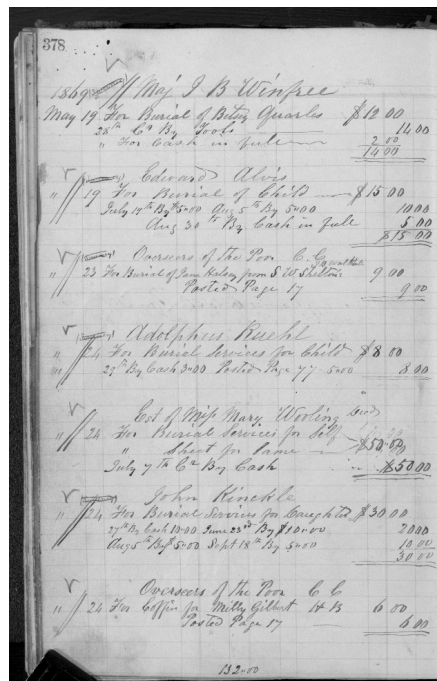 378
1869 Maj J B Winfree
May 19 For Burial of Betsy Quarles $12 00
28th Cr By Tools 14 00
" For Cash in full 2 00
14 00
Edward Alvis
" 19 For Burial of Child $15 00
July 19th By $5 00 Aug 5th By 5 00 10 00
Aug 30th By Cash in full 5 00
$15 00
Overseers of the Poor C. C.
" 23 For Burial of Halsey from S W Shelton's 9 00
Posted Page 17 9 00
Adolphus Ruehl
" 24 For Burial Services for Child $8 00
" 29th By Cash 3 00 Posted Page 77 5 00 8 00
Est of Miss Mary Wooling
" 24 For Burial Services for Self
" Shert for Same $50 00
July 7th Cr By Cash $50 00
John Kinckle
" 24 For Burial Services for Daughter $30 00
27th By Cash 10 00 June 23rd By $10 00 20 00
Aug 5th By $5 00 Sept 18th By 5 00 10 00
30 00
Overseers of the Poor C C
" 24 For Coffin for Milly Gilbert H B 6 00
Posted Page 17 6 00
132 00